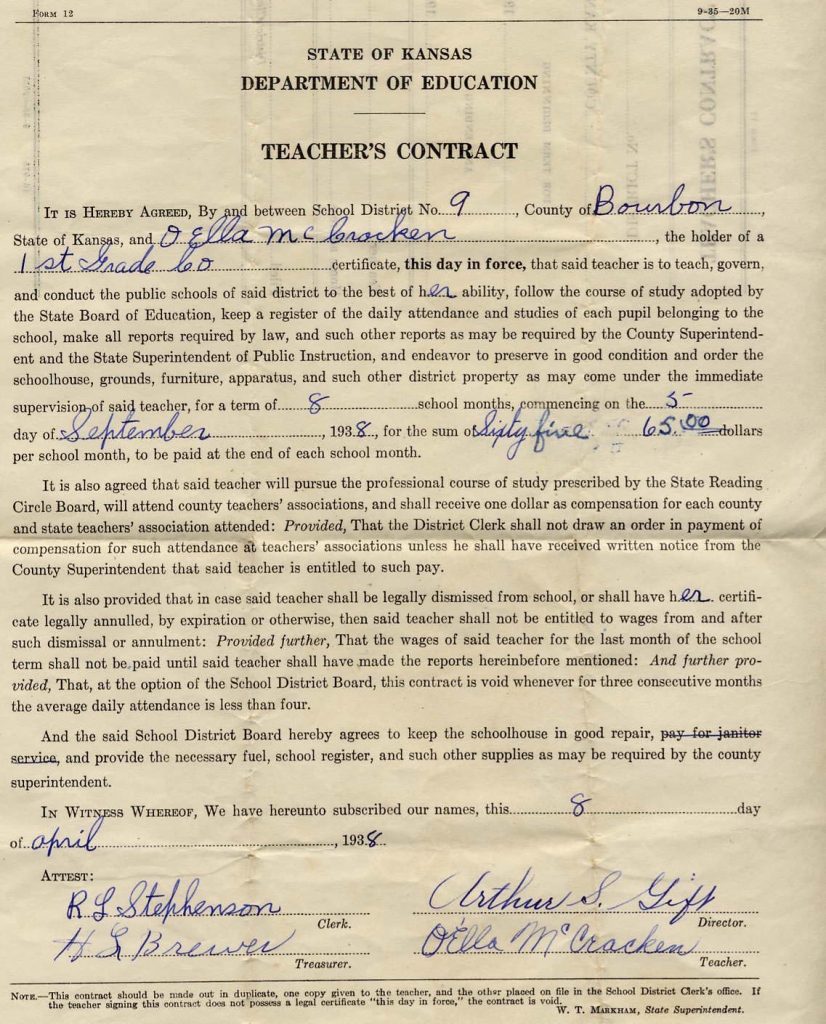 FORM 12 9-35—20M
STATE OF KANSAS
DEPARTMENT OF EDUCATION
TEACHER'S CONTRACT
IT IS HEREBY AGREED, By and between School District No. 9, County of Bourbon,
State of Kansas, and O'Ella McCracken, the holder of a
1st Grade Co certificate, this day in force, that said teacher is to teach, govern,
and conduct the public schools of said district to the best of her ability, follow the course of study adopted by
the State Board of Education, keep a register of the daily attendance and studies of each pupil belonging to the
school, make all reports required by law, and such other reports as may be required by the County Superintend-
ent and the State Superintendent of Public Instruction, and endeavor to preserve in good condition and order the
schoolhouse, grounds, furniture, apparatus, and such other district property as may come under the immediate
supervision of said teacher, for a term of 8 school months, commencing on the 5
day of September, 1938, for the sum of Sixty five 65.00 dollars
per school month, to be paid at the end of each school month.
It is also agreed that said teacher will pursue the professional course of study prescribed by the State Reading
Circle Board, will attend county teachers' associations, and shall receive one dollar as compensation for each county
and state teachers' association attended: Provided, That the District Clerk shall not draw an order in payment of
compensation for such attendance at teachers' associations unless he shall have received written notice from the
County Superintendent that said teacher is entitled to such pay.
It is also provided that in case said teacher shall be legally dismissed from school, or shall have her certifi-
cate legally annulled, by expiration or otherwise, then said teacher shall not be entitled to wages from and after
such dismissal or annulment: Provided further, That the wages of said teacher for the last month of the school
term shall not be paid until said teacher shall have made the reports hereinbefore mentioned: And further pro-
vided, That, at the option of the School District Board, this contract is void whenever for three consecutive months
the average daily attendance is less than four.
And the said School District Board hereby agrees to keep the schoolhouse in good repair, pay for janitor
service, and provide the necessary fuel, school register, and such other supplies as may be required by the county
superintendent.
IN WITNESS WHEREOF, We have hereunto subscribed our names, this 8 day
of april, 1938.
ATTEST:
R L Stephenson Arthur S. Gift
Clerk. Director.
H L Brewer O'Ella McCracken
Treasurer. Teacher.
NOTE.—This contract should be made out in duplicate, one copy given to the teacher, and the other placed on file in the School District Clerk's office. If
the teacher signing this contract does not possess a legal certificate "this day in force," the contract is void.
W. T. MARKHAM, State Superintendent.